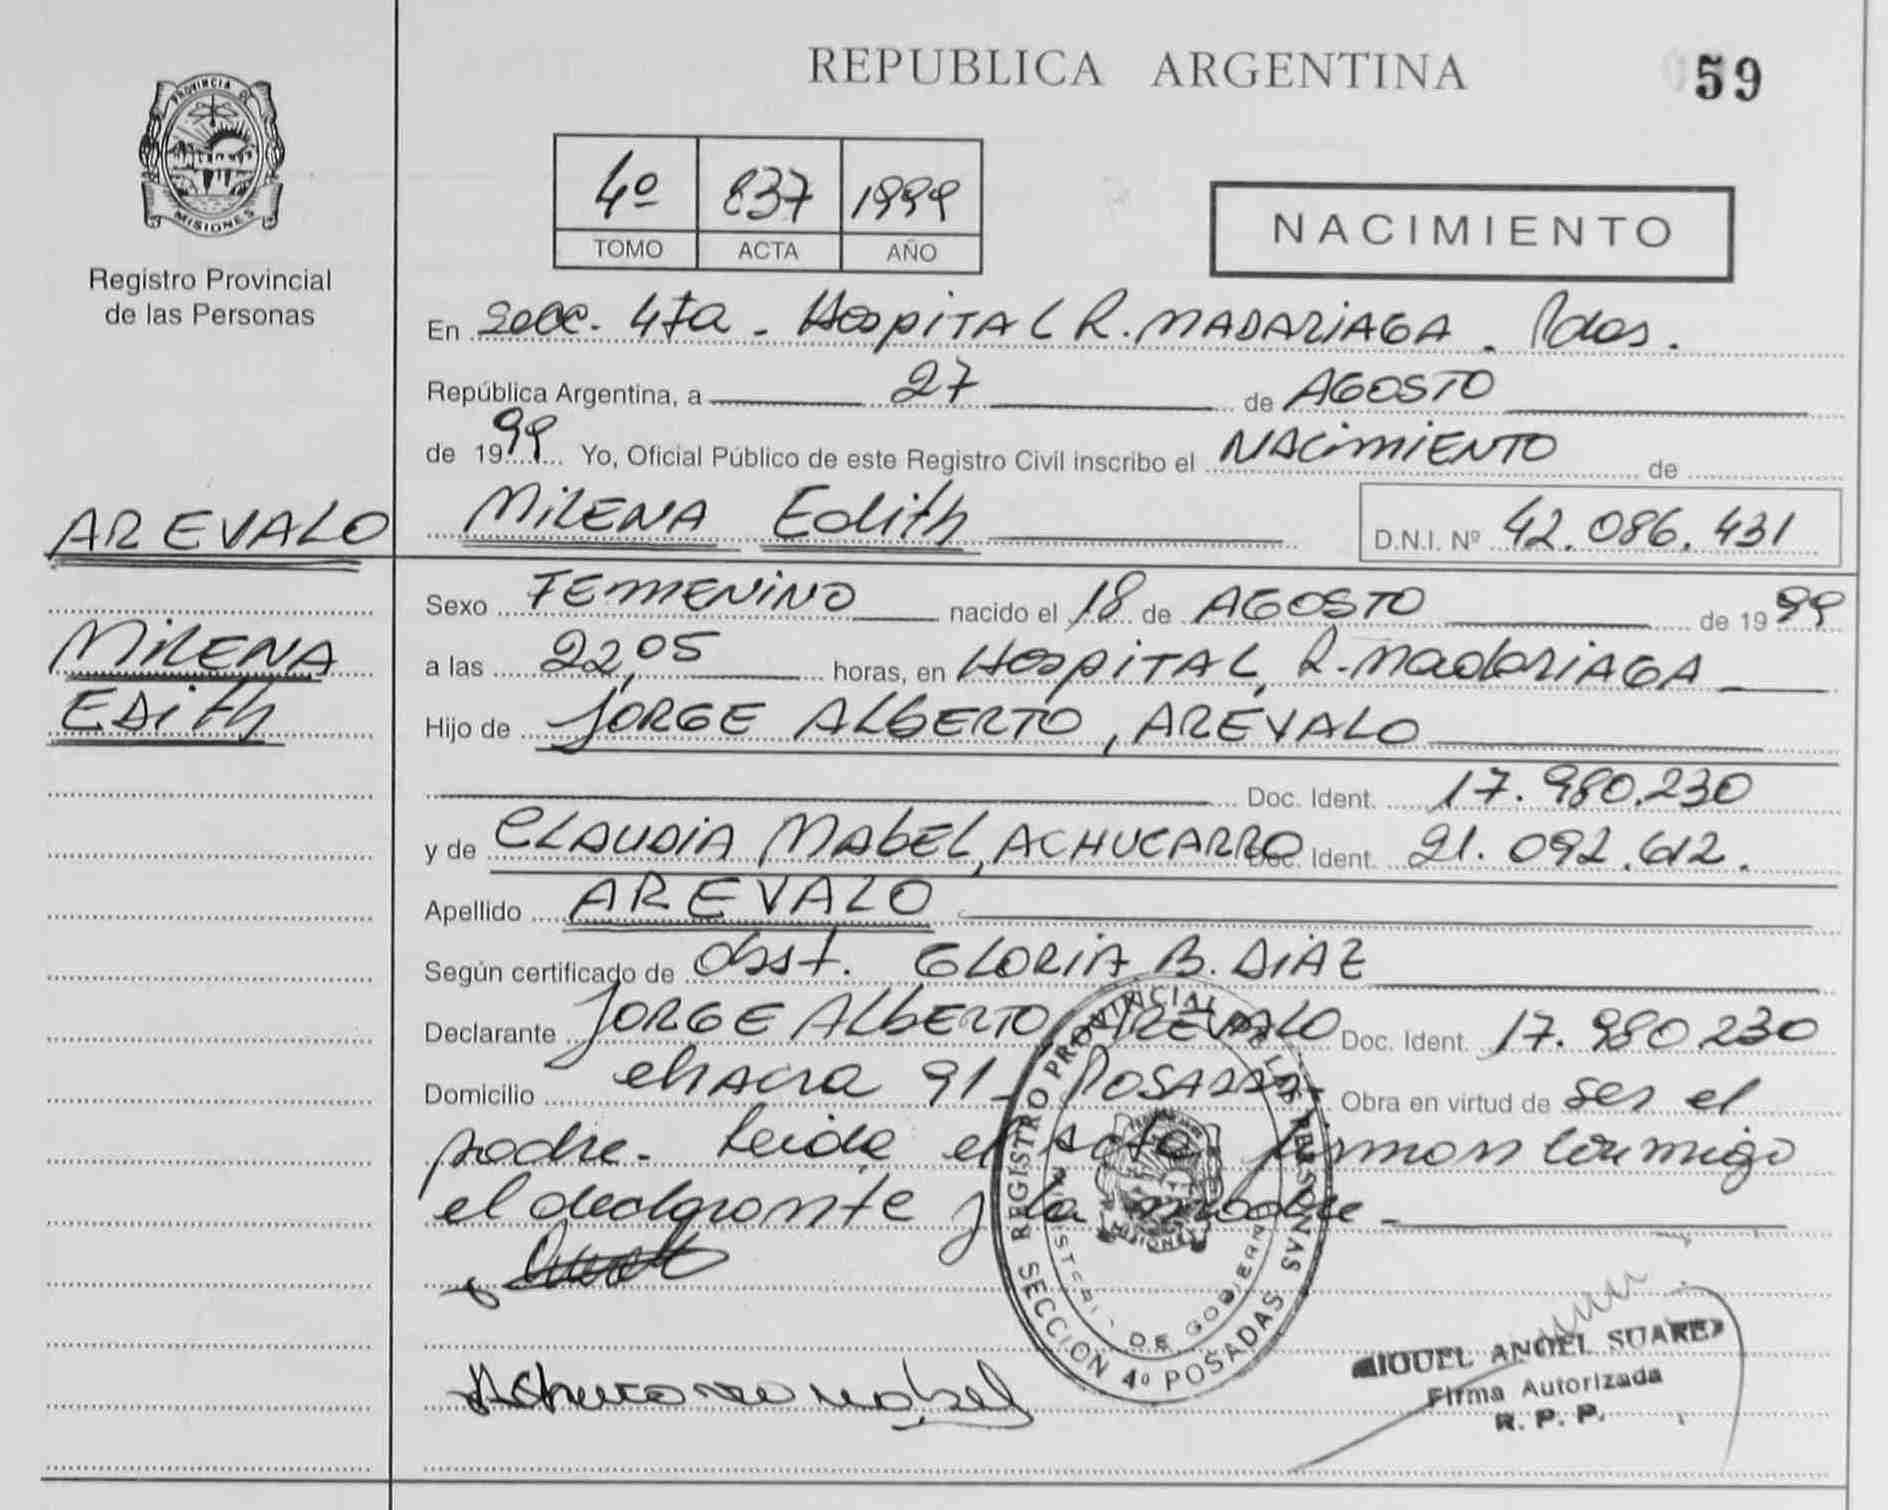 REPUBLICA ARGENTINA
59
PROVINCIA DE
MISIONES
Registro Provincial
de las Personas
4º 837 1999
TOMO ACTA AÑO
NACIMIENTO
En Secc. 4ta - Hospital R. MADARIAGA - Pdas.
República Argentina, a 27 de AGOSTO
de 1999 Yo, Oficial Público de este Registro Civil inscribo el NACIMIENTO de
AREVALO
MILENA Edith D.N.I. Nº 42.086.431
Sexo FEMENINO nacido el 18 de AGOSTO de 1999
MILENA
Edith
a las 22,05 horas, en Hospital, R. Madariaga
Hijo de JORGE ALBERTO, AREVALO
Doc. Ident. 17.980.230
y de CLAUDIA MABEL, ACHUCARRO Doc. Ident. 21.092.612.
Apellido AREVALO
Según certificado de Obst. GLORIA B. DIAZ
Declarante JORGE ALBERTO AREVALO Doc. Ident. 17.980.230
Domicilio chacra 91 - Posadas - Obra en virtud de ser el
padre. Leida el acta firman conmigo
el declarante y la madre -
Achucarro Mabel
REGISTRO PROVINCIAL DE LAS PERSONAS
SECCION 4º POSADAS
MINISTERIO DE GOBIERNO
MISIONES
MIGUEL ANGEL SUAREZ
Firma Autorizada
R. P. P.